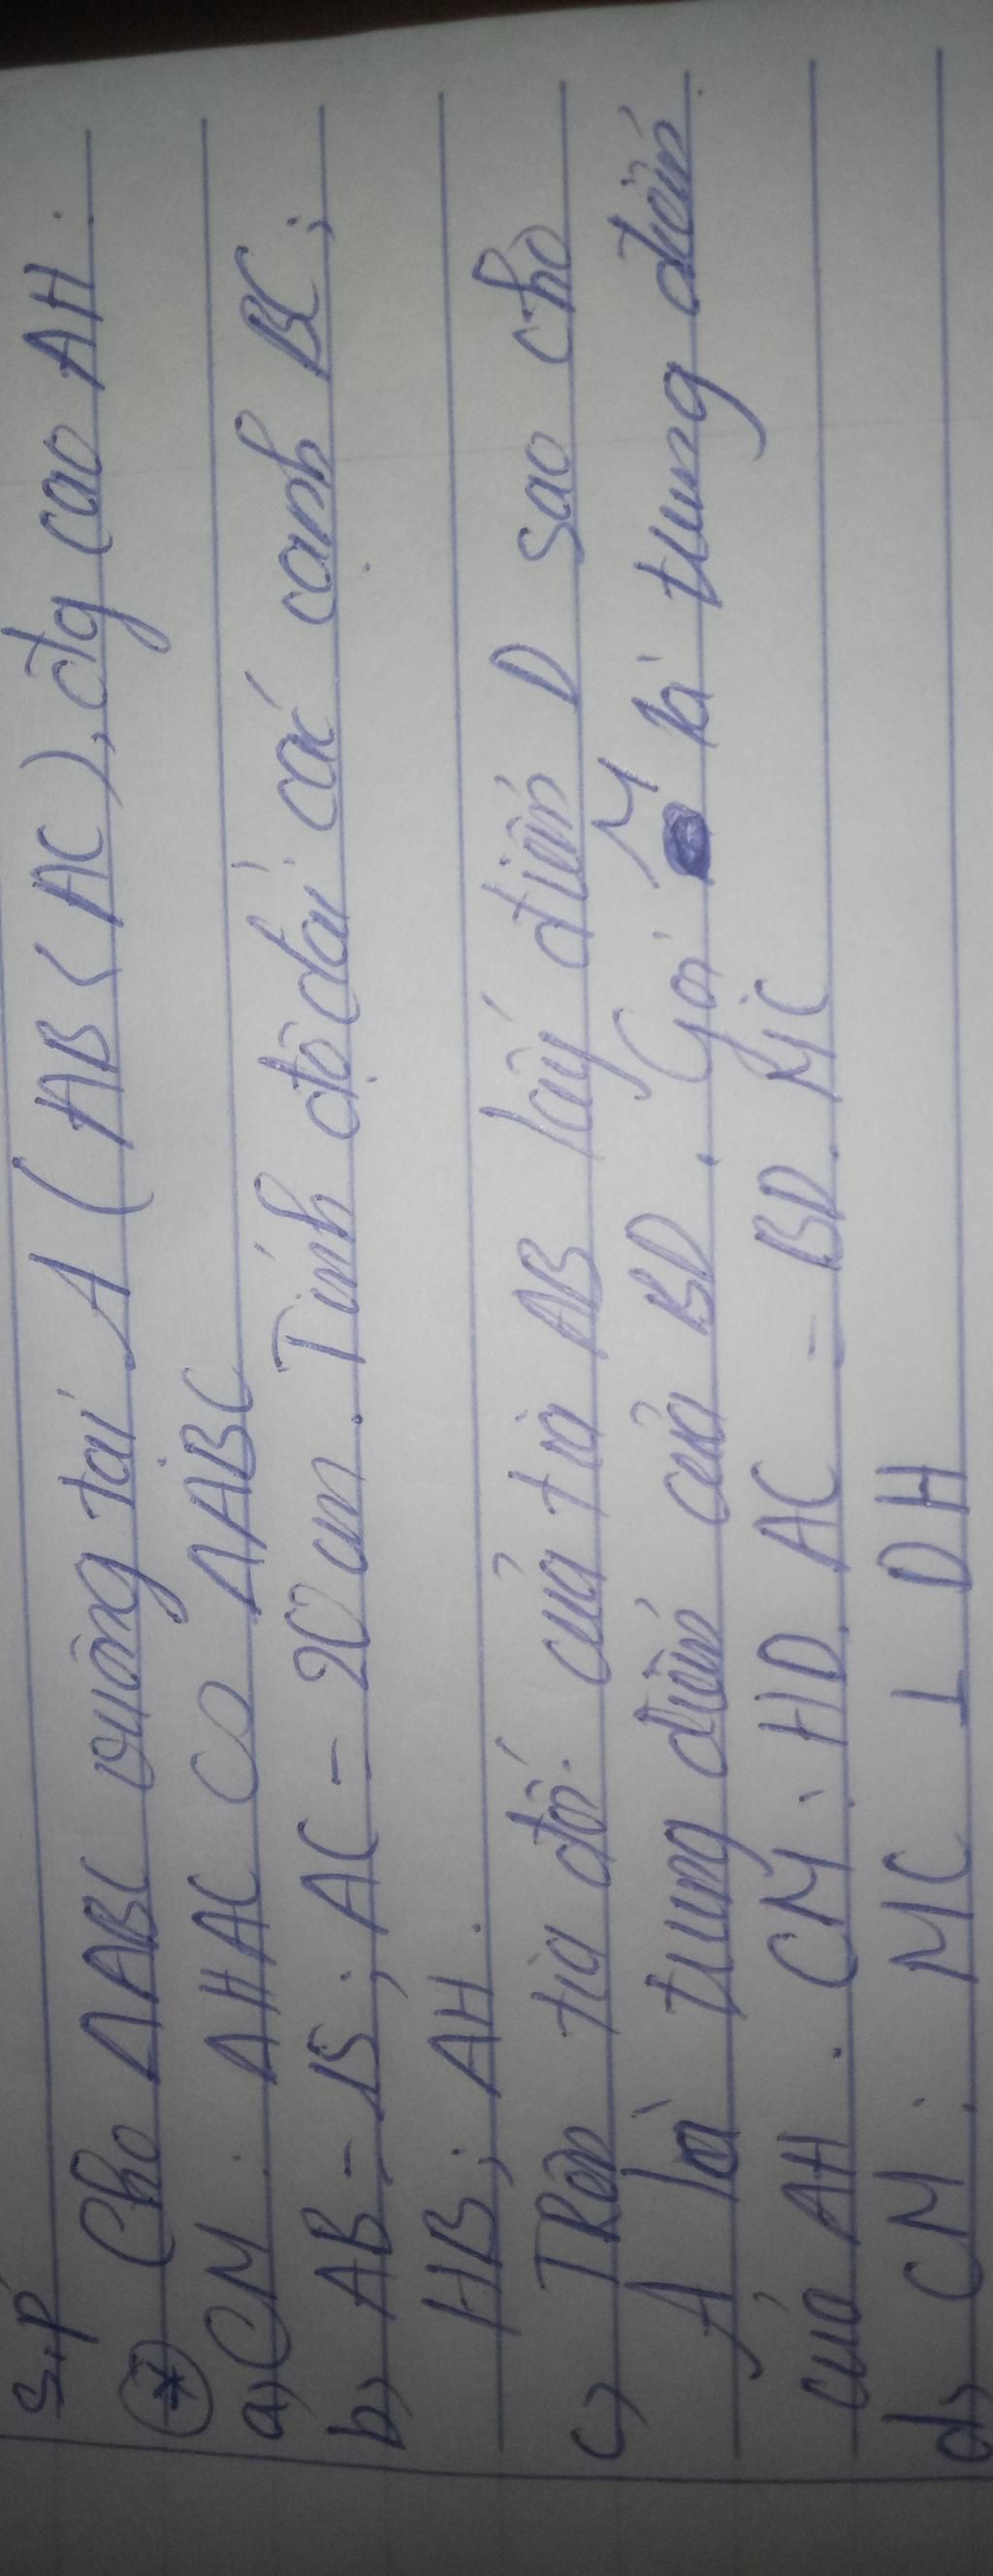 S.P
* Cho ΔABC vuông tại A (AB < AC), đg cao AH.
a) CM. ΔHAC ∽ ΔABC
b) AB = 15; AC = 20 cm. Tính độ dài các cạnh BC;
HB; AH.
c) Trên tia đối của tia AB lấy điểm D sao cho
A là trung điểm của BD. Gọi M là trung điểm
của AH. CM: HD. AC = BD. MC
d) CM: MC ⊥ DH